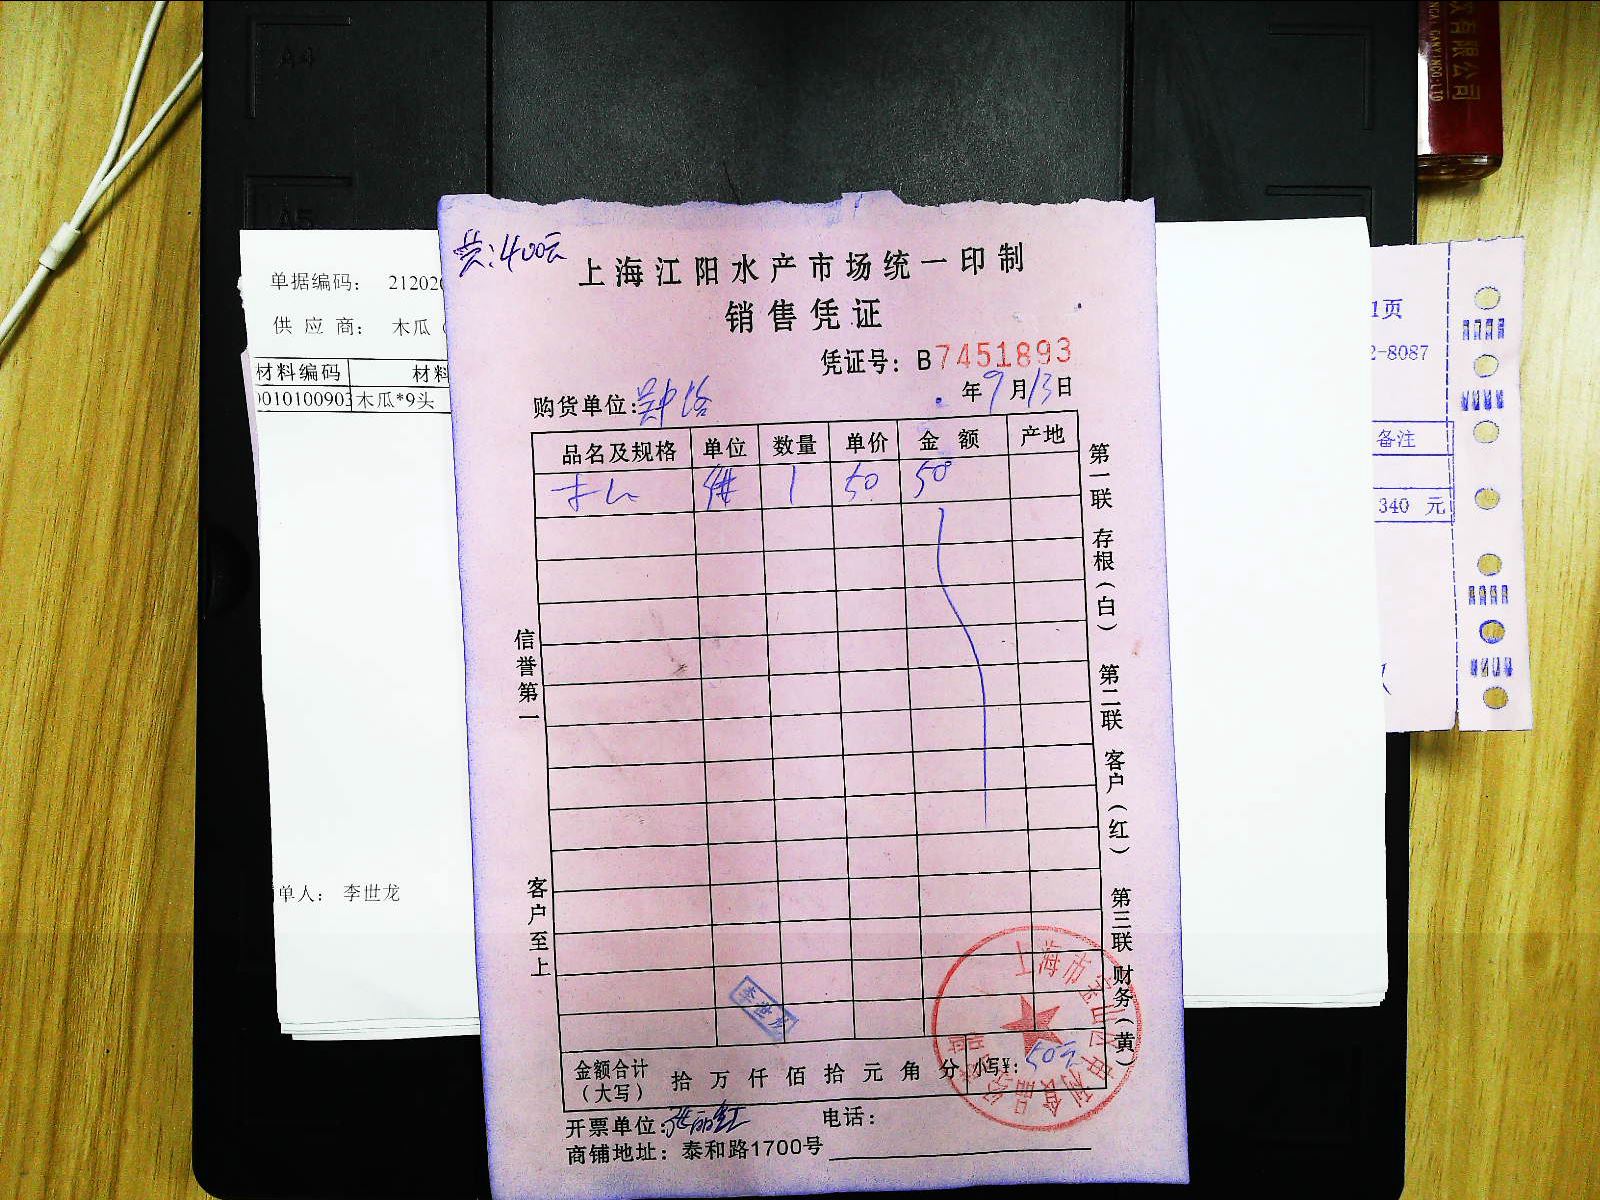 A4
A5
改有限公司
共:400元
上海江阳水产市场统一印制
销售凭证
凭证号：B7451893
年9月13日
购货单位:
品名及规格 单位 数量 单价 金额 产地
1 50 50
信誉第一
客户至上
第一联 存根（白） 第二联 客户（红） 第三联 财务（黄）
金额合计（大写） 拾 万 仟 佰 拾 元 角 分 小写¥: 50元
开票单位: 张丽红 电话:
商铺地址: 泰和路1700号
李世龙
上海市宝山区
单据编码： 212020
供应商： 木瓜（
材料编码 材料
010100903 木瓜*9头
单人： 李世龙
1页
2-8087
备注
340 元